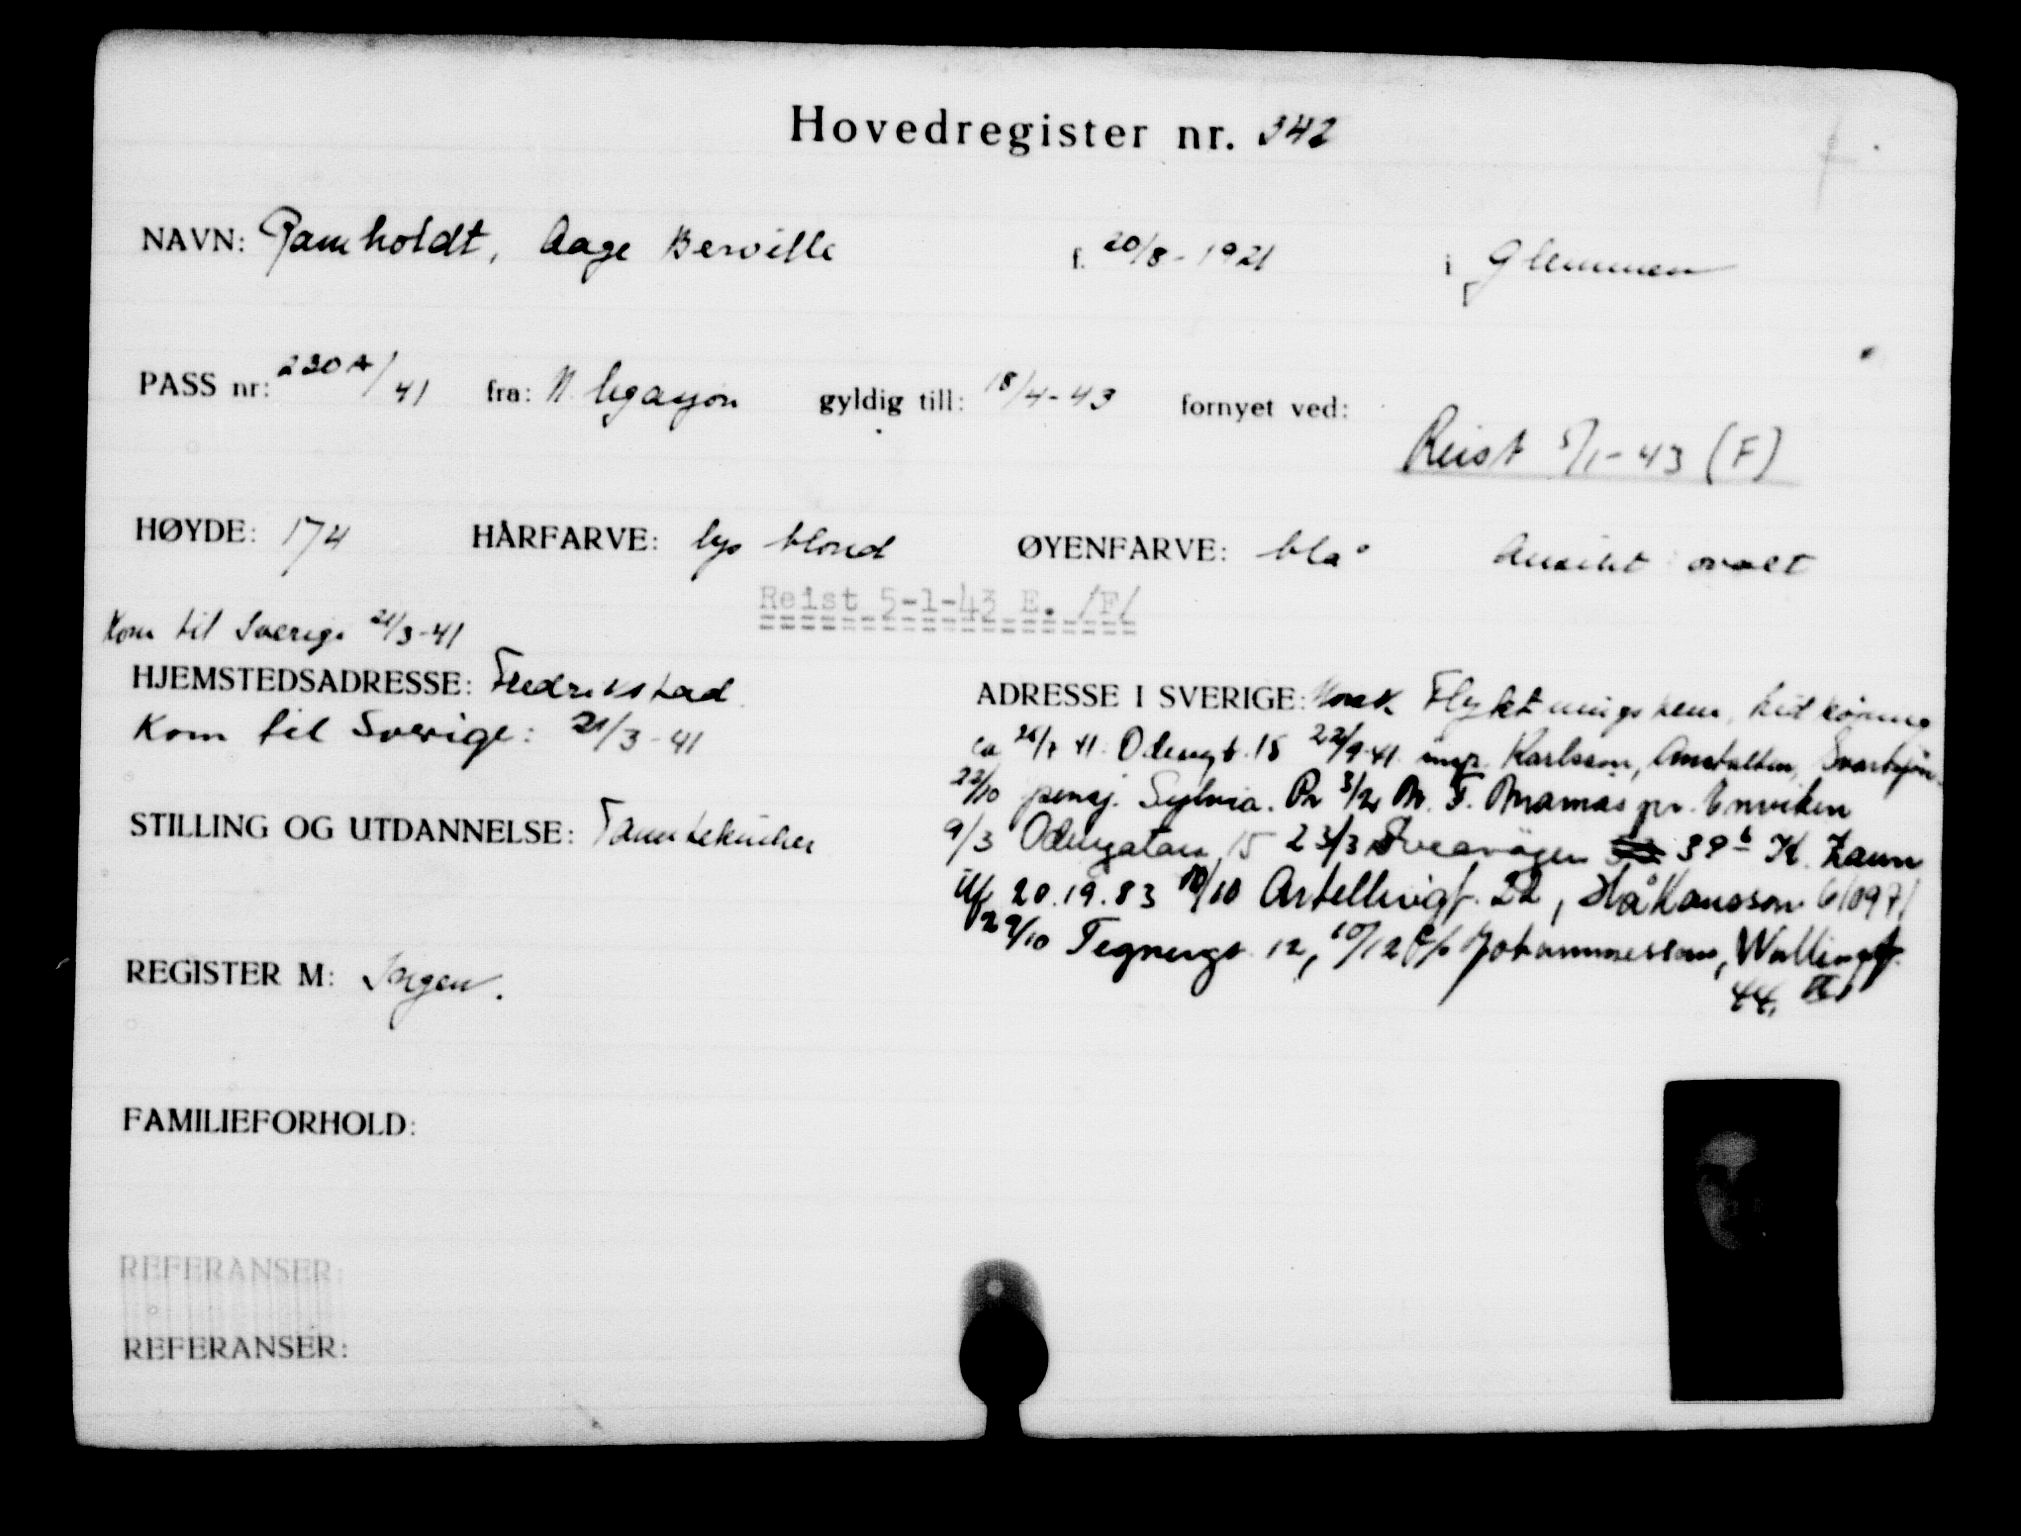 Hovedregister nr. 342
NAVN: Ramholdt, Aage Berville f. 20/8-1921 i Glemmen
PASS nr: 230A/41 fra: N. legasjon gyldig till: 18/4-43 fornyet ved:
Reist 5/1-43 (F)
HØYDE: 174 HÅRFARVE: lys blond ØYENFARVE: blå Ansikt ovalt
Reist 5-1-43 E. /F/
Kom til Sverige 21/3-41
HJEMSTEDSADRESSE: Fredrikstad
Kom til Sverige: 21/3-41
ADRESSE I SVERIGE: Norsk Flyktningshem,
ca 26/7 41. Odengt. 15 22/9-41 ing. Karlsson, Anstalten,
22/10 pensj. Sylvia. Pr 3/2 F. Mamas pr. Enviken
STILLING OG UTDANNELSE: Tanntekniker
9/3 Odengatan 15 23/3 Sveavägen 39 b K. Zaun
tlf 20.19.83 10/10 Artellerigt. 22, Håkansson
29/10 Tegnergt 12, 10/12 c/o Johannessen, Wallingt.
44,
REGISTER M: Ingen.
FAMILIEFORHOLD:
REFERANSER:
REFERANSER: